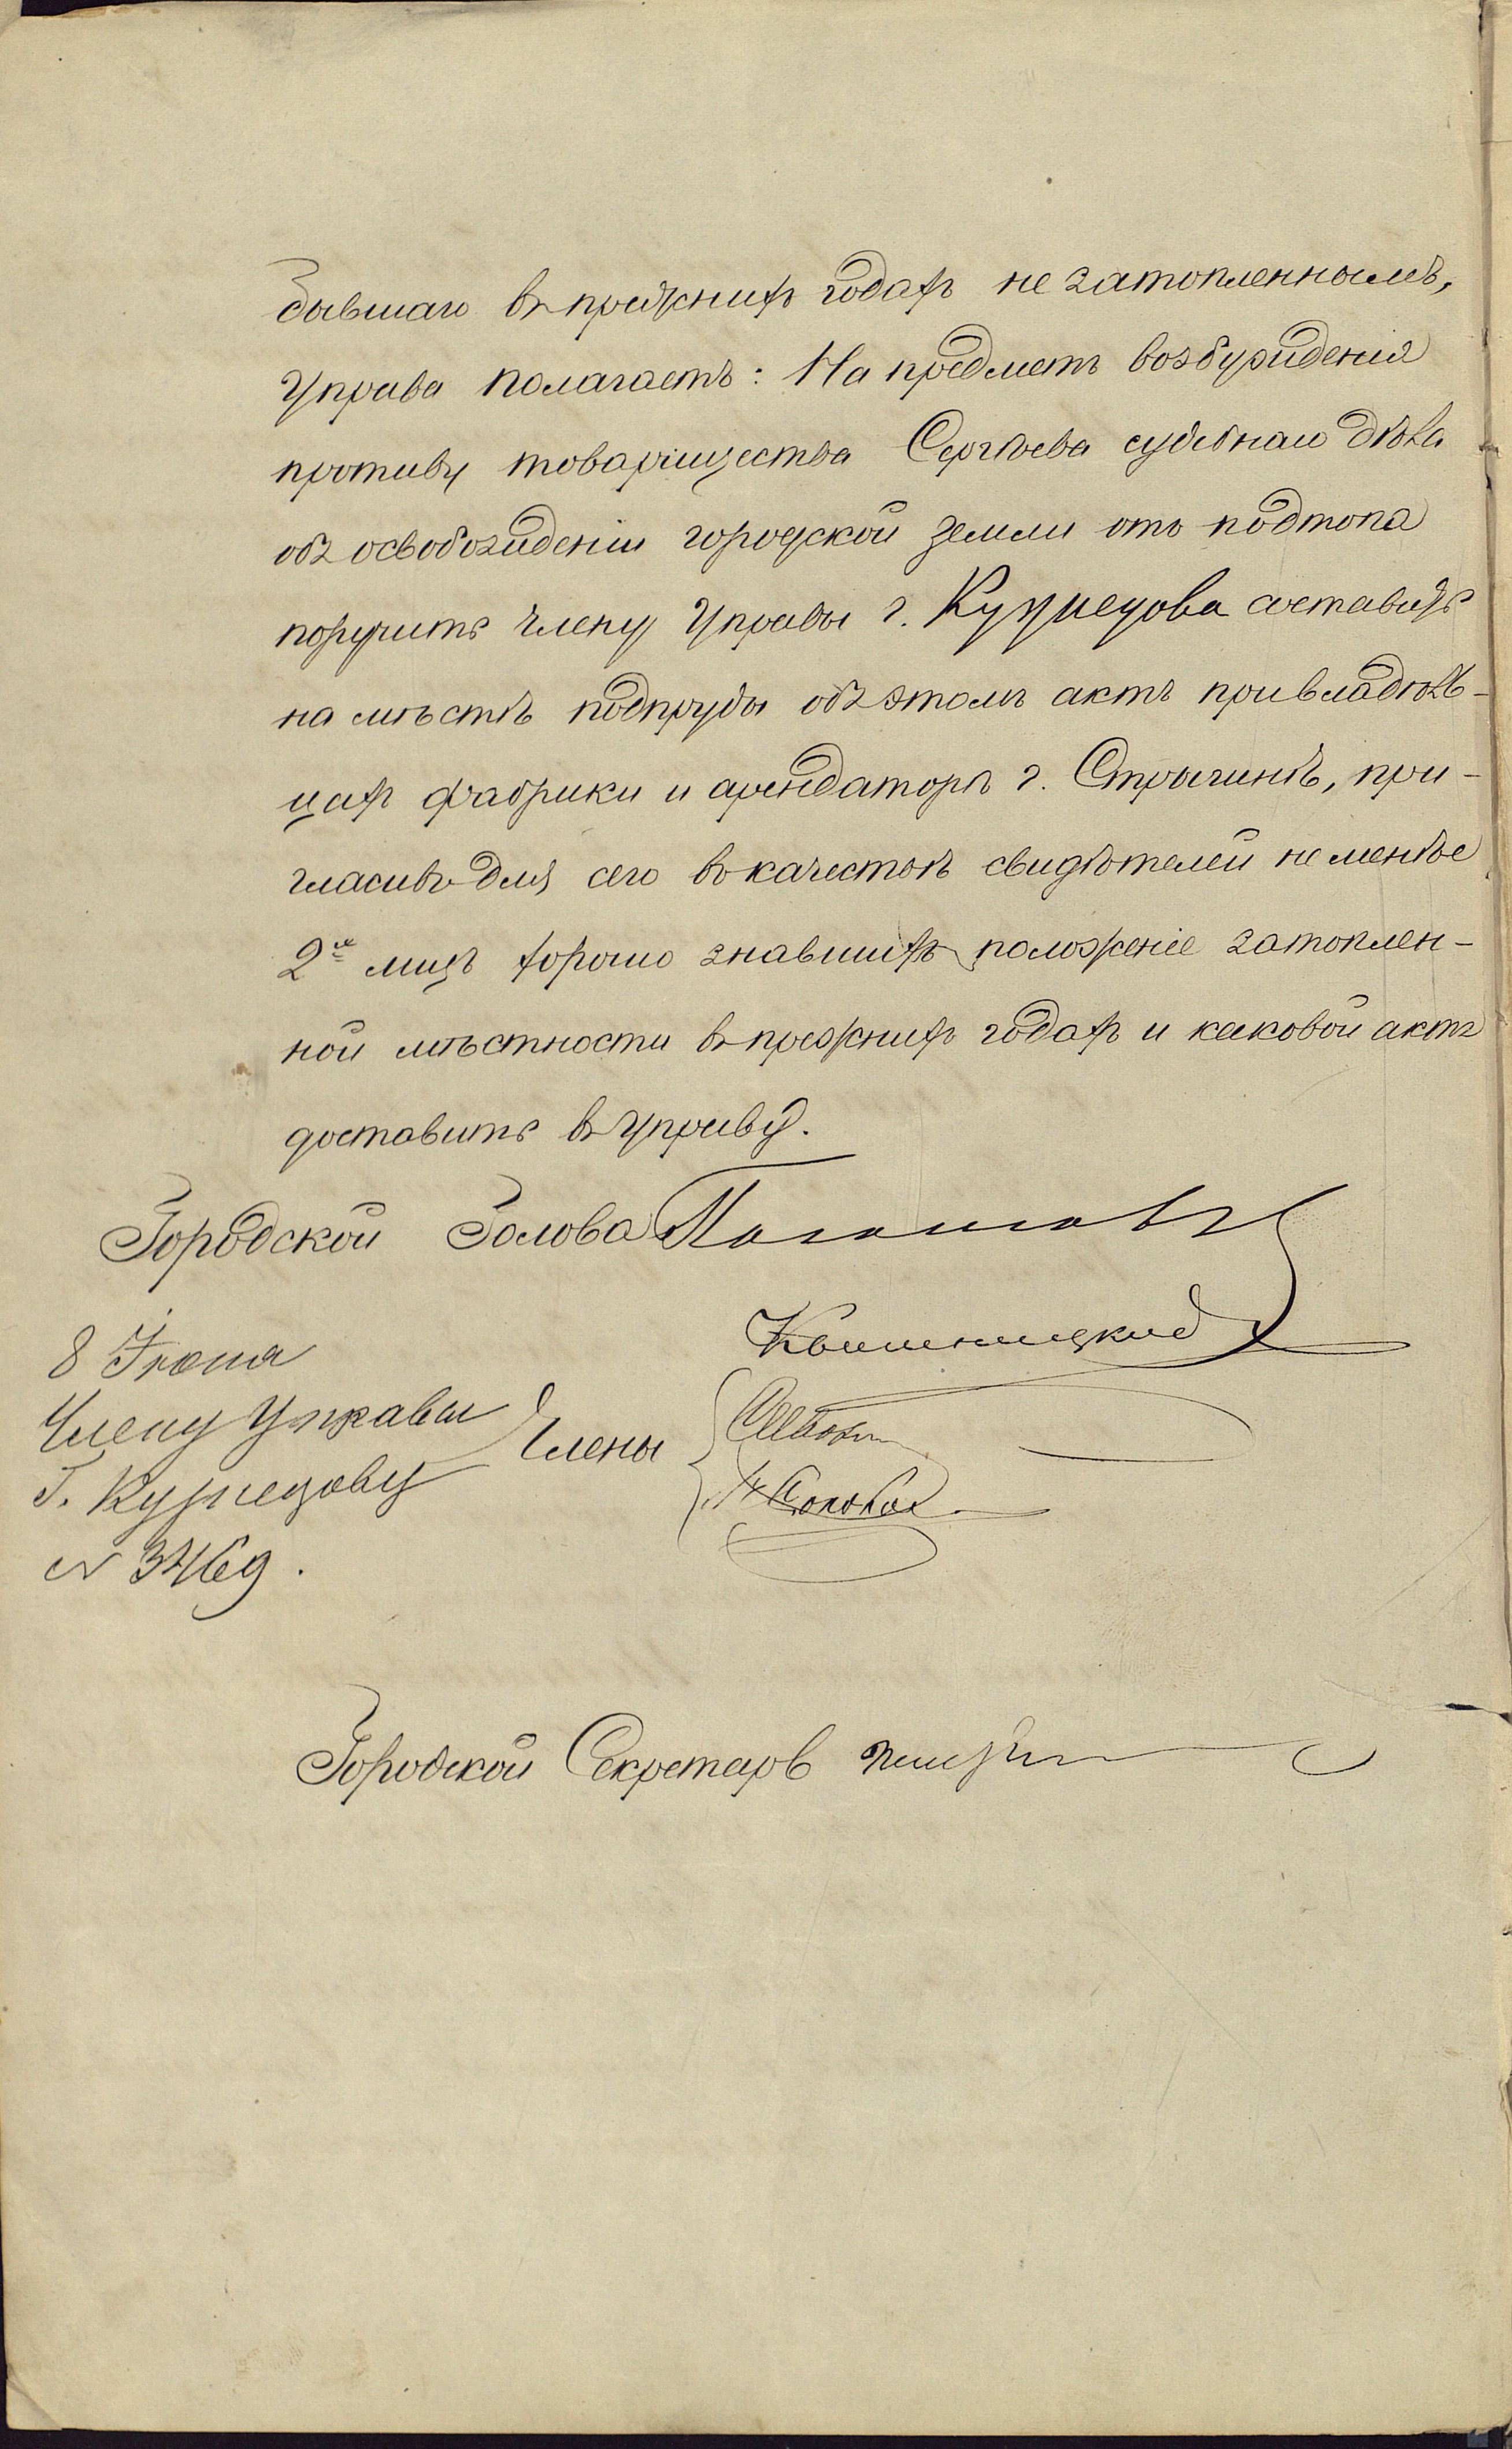 бывшаго въ прежнихъ годахъ не затопленнымъ,
Управа полагаетъ: На предметъ возбужденія
противу товарищества Сергѣева судебнаго дѣла
объ освобожденіи городской земли отъ подтопа
поручить члену Управы г. Кузнецова составить
на мѣстѣ подпруды объ этомъ актъ при владѣль-
цахъ фабрики и арендаторѣ г. Стрыгинѣ, при-
гласивъ для сего въ качествѣ свидѣтелей не менѣе
2хъ лицъ хорошо знавшихъ положеніе затоплен-
ной мѣстности въ прежнихъ годахъ и каковой актъ
доставить въ Управу.
Городской Голова
8 Іюня
Члену Управы
Г. Кузнецову
Члены
№ 3469.
Городской Секретарь